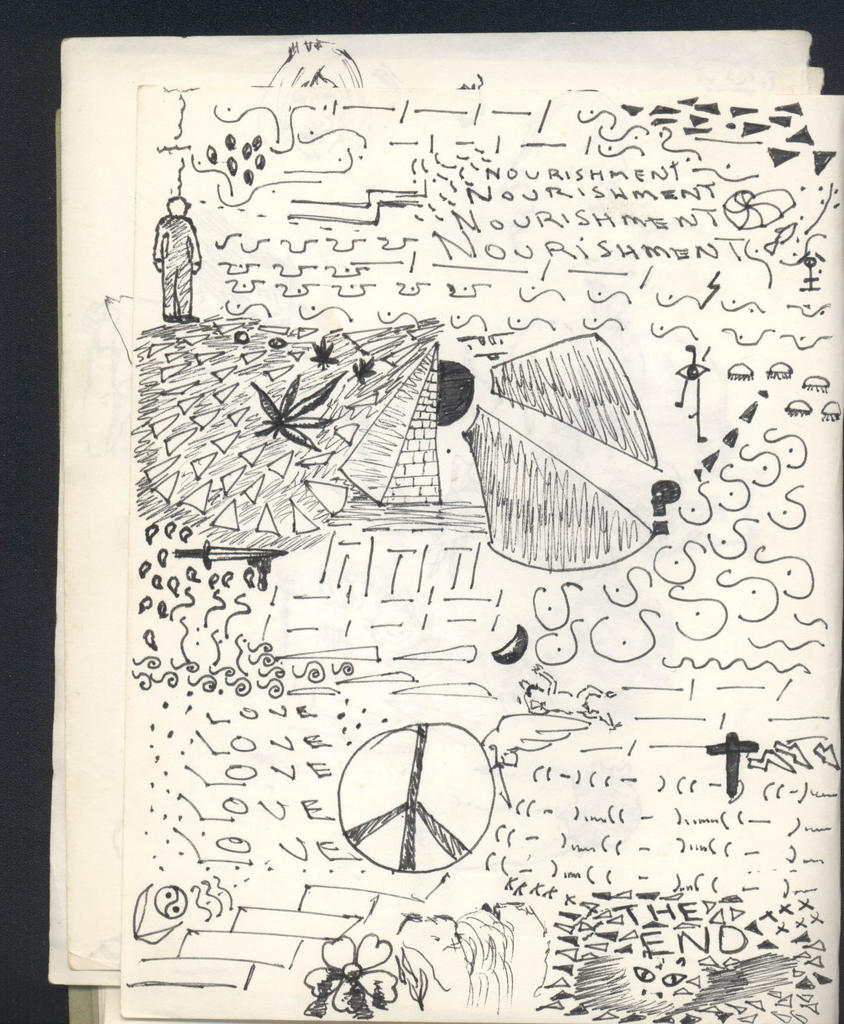 NOURISHMENT
NOURISHMENT
NOURISHMENT
NOURISHMENT
LOVE
LOVE
LOVE
LOVE
LOVE
KKKK
THE
END